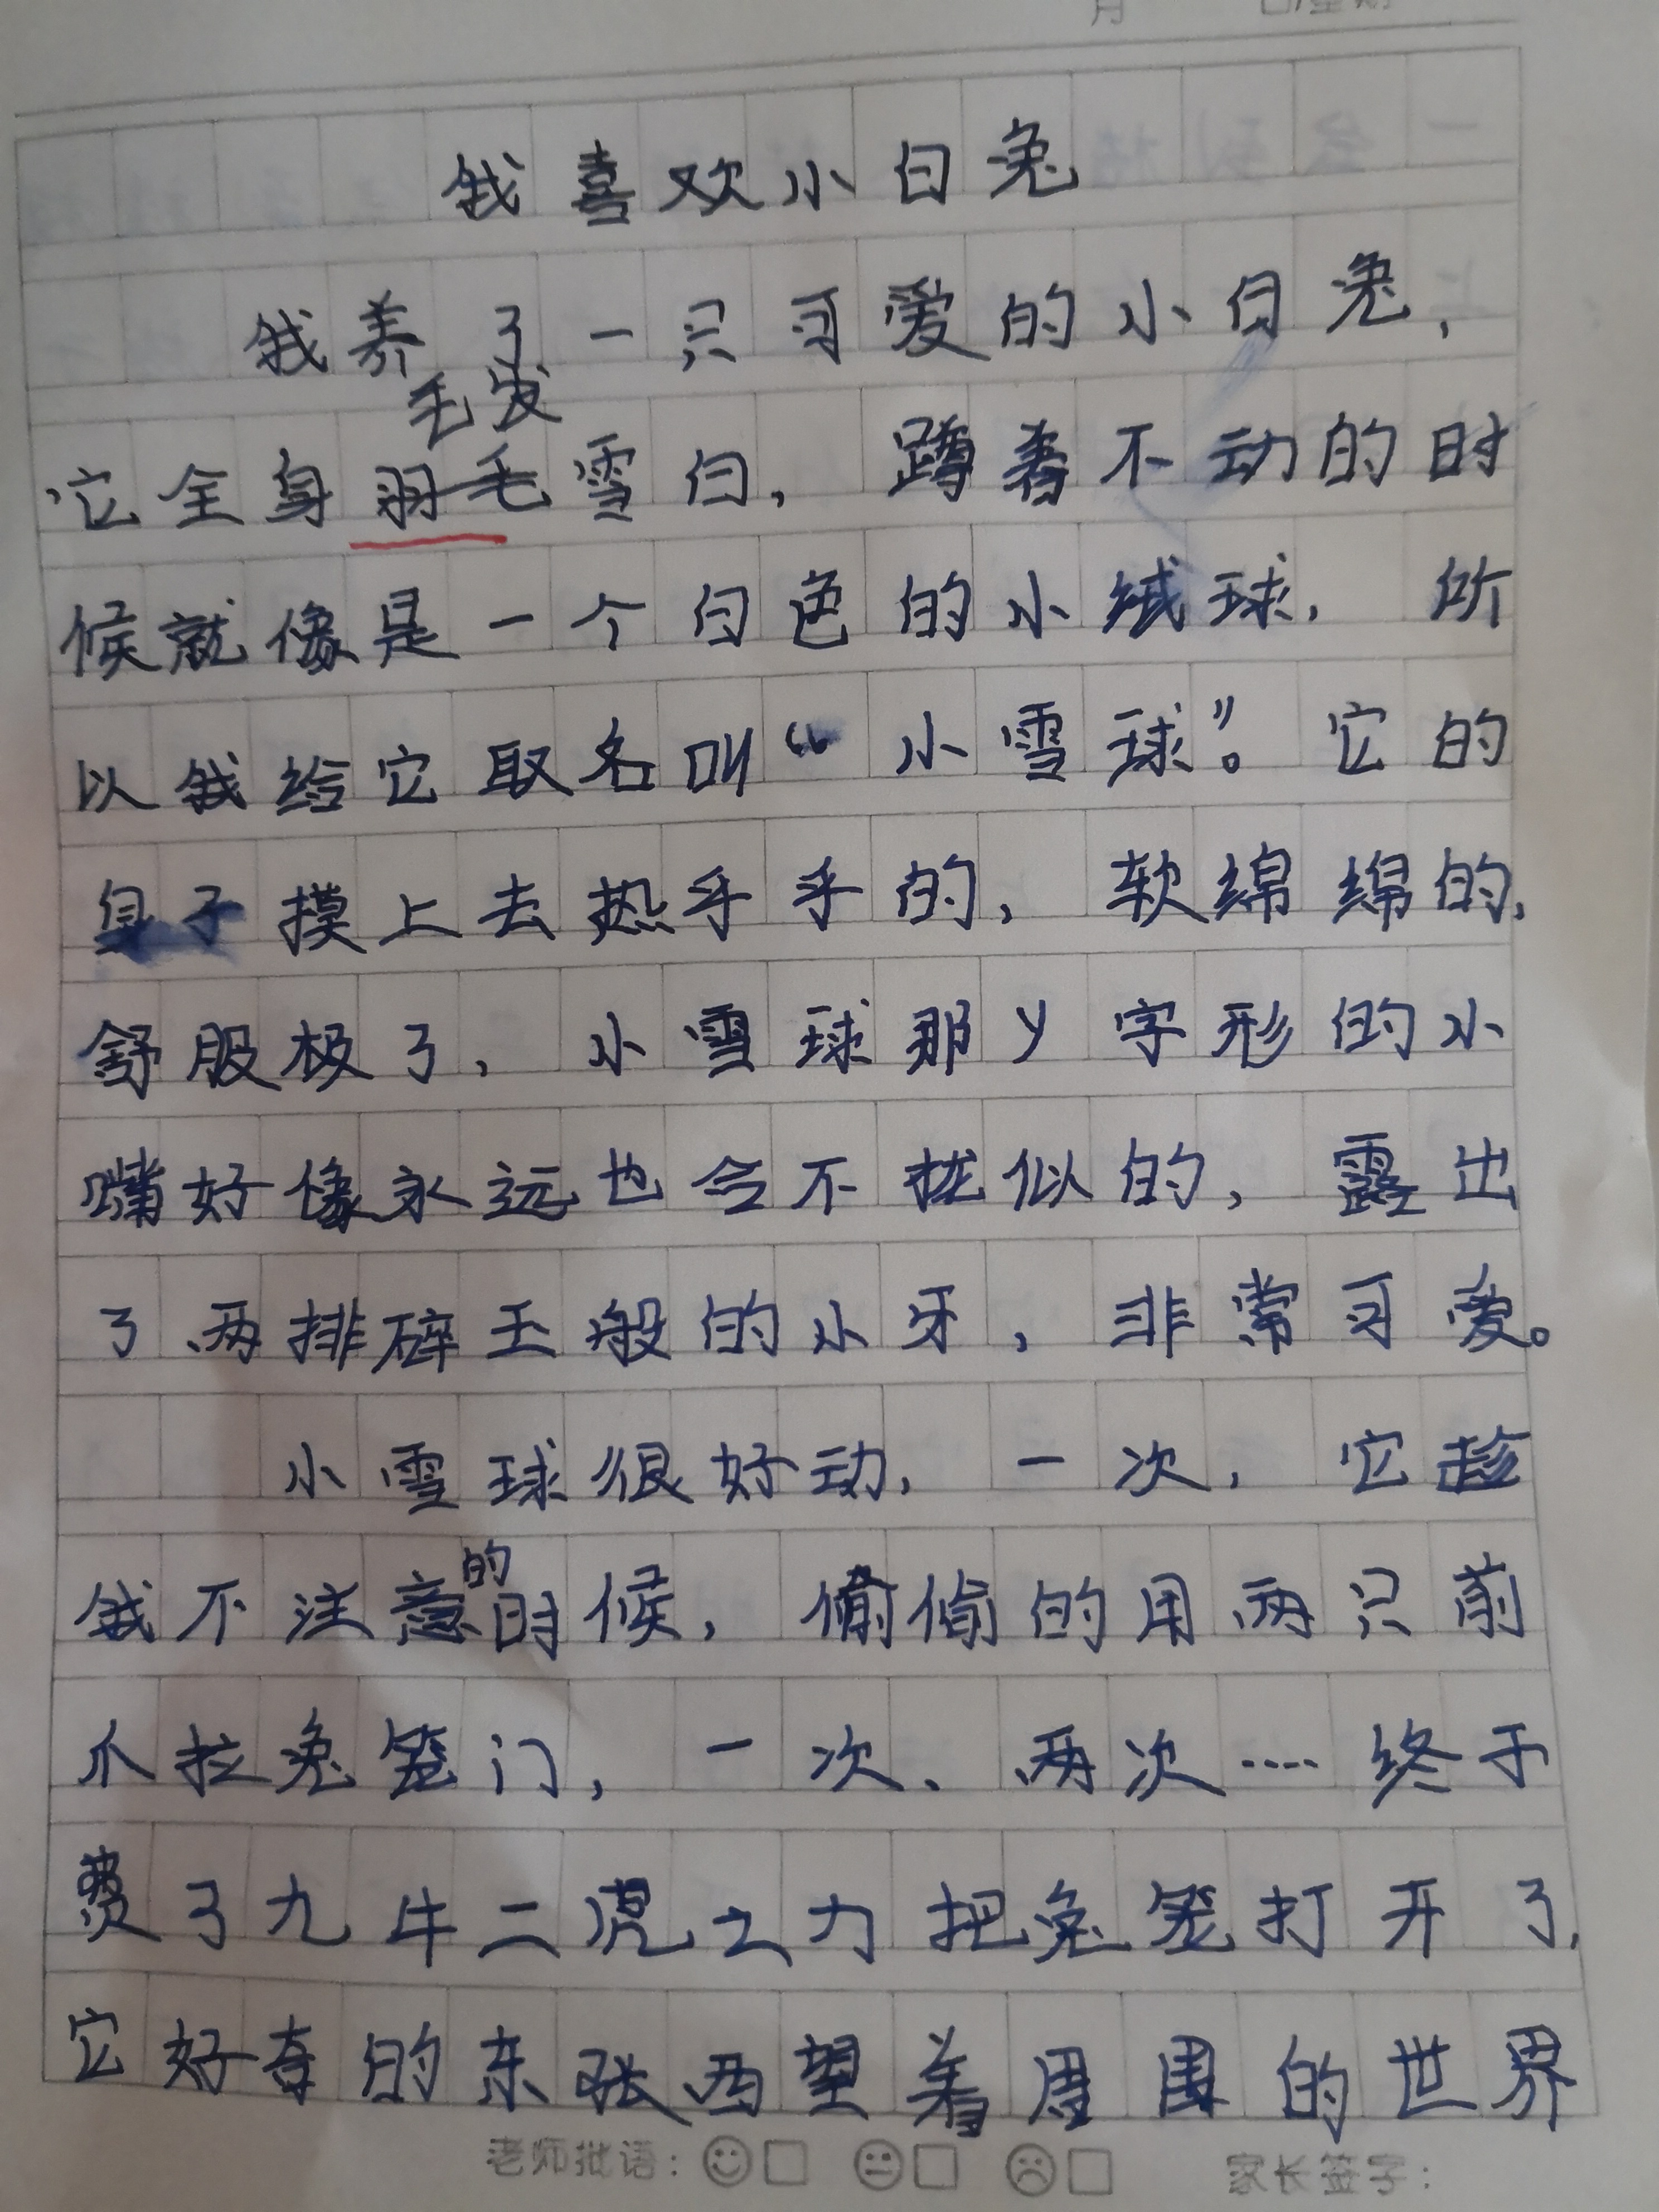 我喜欢小白兔
我养了一只可爱的小白兔，
毛发
它全身羽毛雪白，蹲着不动的时
候就像是一个白色的小绒球，所
以我给它取名叫“小雪球”。它的
身子摸上去热乎乎的，软绵绵的，
舒服极了，小雪球那y字形的小
嘴好像永远也合不拢似的，露出
了两排碎玉般的小牙，非常可爱。
小雪球很好动，一次，它趁
我不注意的时候，偷偷的用两只前
爪拉兔笼门，一次、两次……终于
费了九牛二虎之力把兔笼打开了，
它好奇的东张西望着周围的世界
老师批语： 家长签字：